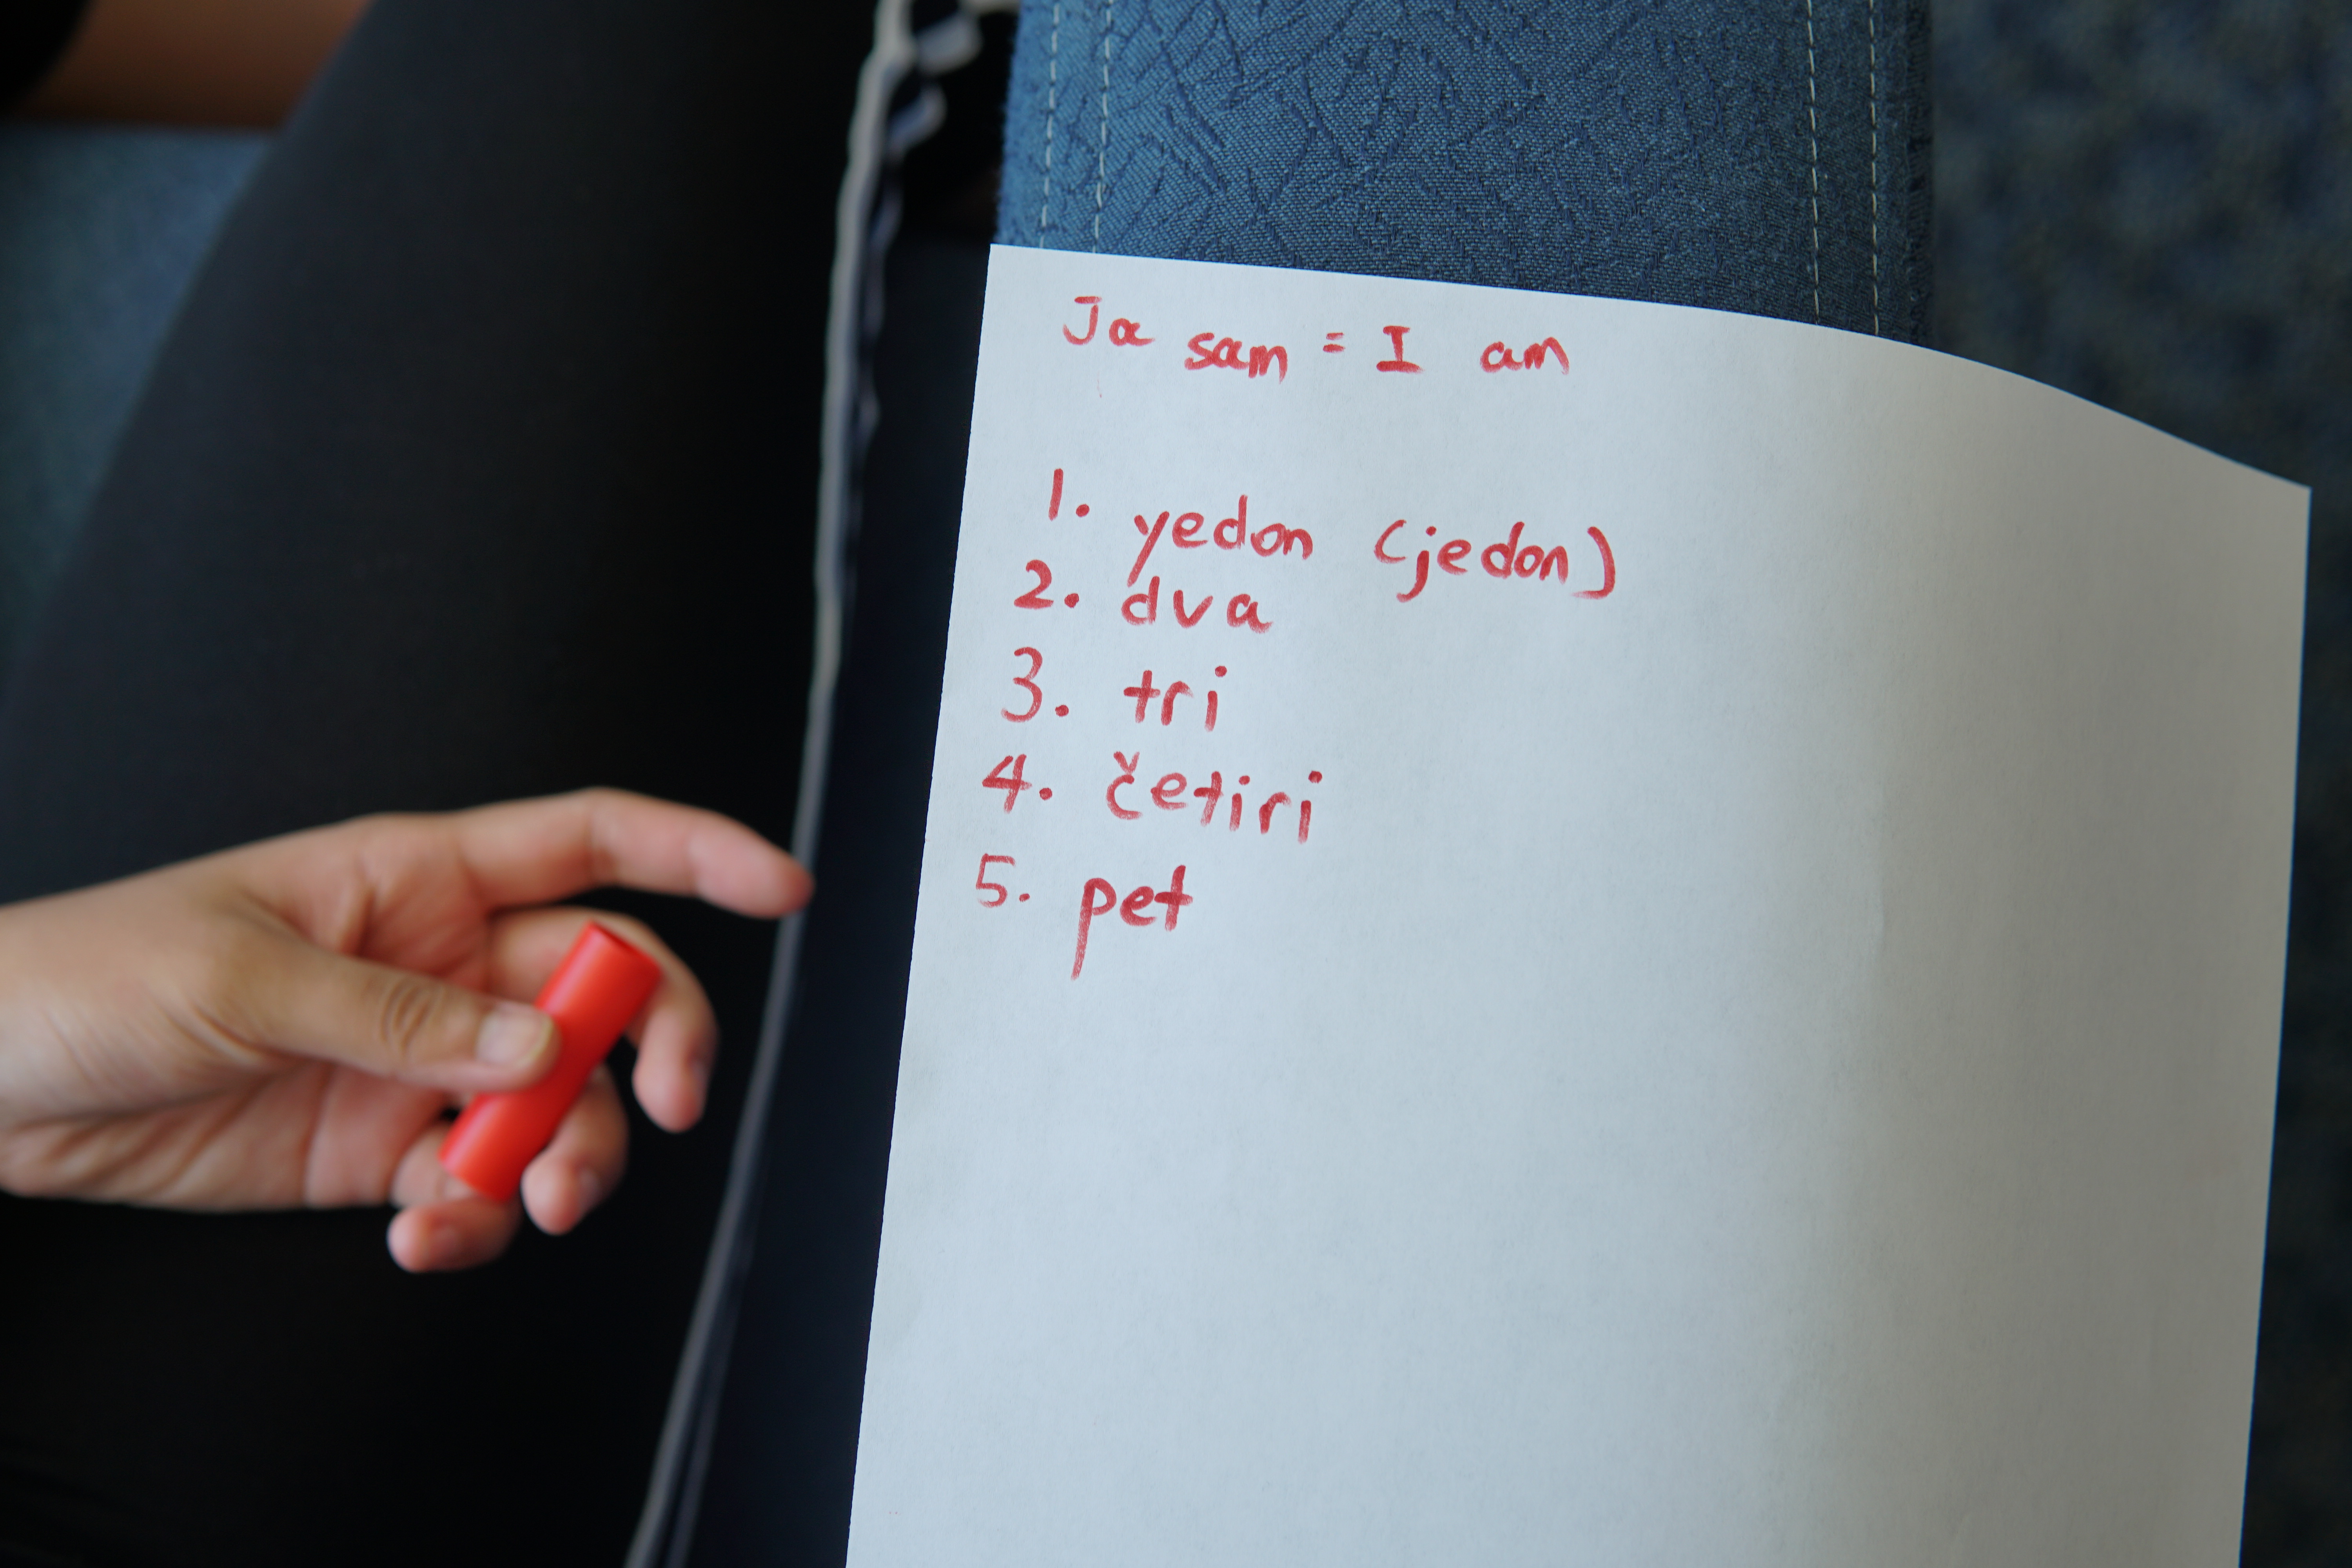 Ja sam = I am
1. yedon (jedon)
2. dva
3. tri
4. četiri
5. pet